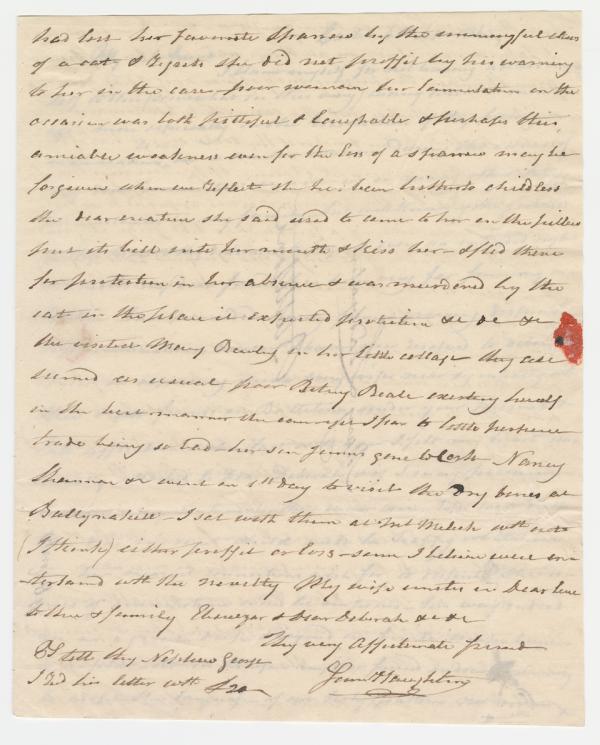 had lost her favourite Sparrow by the unmerciful claws
of a cat - & I guess she did not proffit by his warning
to her in the case - poor woman her lamentation on the
occasion was both pittiful & laughable & perhaps this
amiable weakness even for the loss of a sparrow may be
forgiven when we reflect she has been hitherto childless
the dear creature she said used to come to her on the pillow
put its bill into her mouth & kiss her - & fled there
for protection in her absence & was murdered by the
cat in the place it expected protection &c &c &c
She visited Mary in her little cottage they all
seemed as usual poor Betsy Beale exerting herself
in the best manner she can - yet I fear to little purpose
trade being so bad - her son James gone to Cork Nancy
Shannon &c went on 1st day to visit the dry bones at
Ballynakill - I sat with them at Mt Melick wth out
(I think) either proffit or loss - some I believe were en
-tertaind wth the novelty My wife unites in Dear love
to thee & family Ebenezer & Dear Deborah &c &c
Thy very Affectionate friend
PS tell thy Nephew George
I recd his letter wth £20